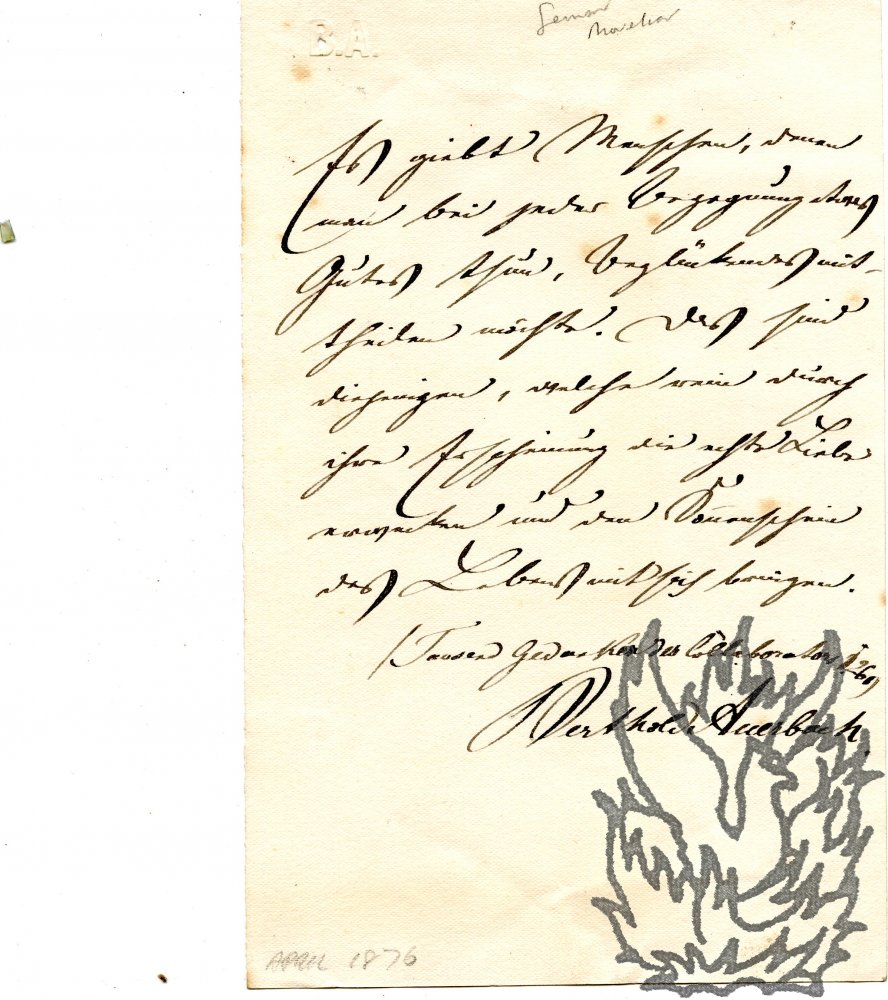 B.A.
German
Novelist
Es giebt Menschen, denen
man bei jeder Begegnung etwas
Gutes thun, Beglückendes mit-
theilen möchte. Das sind
diejenigen, welche rein durch
ihre Erscheinung die echte Liebe
erwecken und den Sonnenschein
des Lebens mit sich bringen.
(Tausend Gedanken des Collaborators
Berthold Auerbach.
APRIL 1876